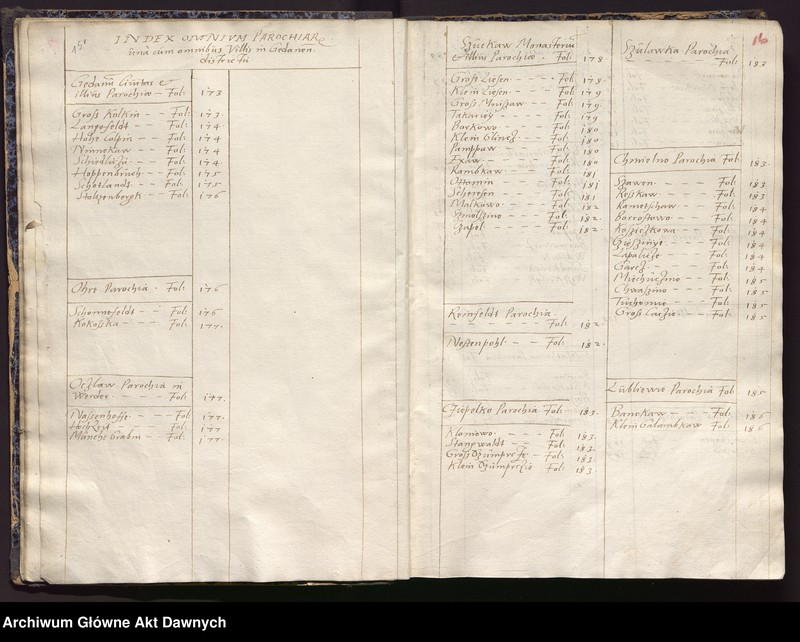 15ᵛ
INDEX OMNIUM PAROCHIAR
unà cum omnibus Villis in Gedanen.
districtu
Gedanū Civitas et
illius Parochiæ - Fol: 173
Gross Kolkin - - Fol: 173.
Langefeldt - - Fol: 174.
Hohe Colpin - - Fol: 174
Nennekaw - - Fol: 174
Schirdlizū - - Fol: 174.
Hoppenbruch - - Fol: 175
Schotlandt - - Fol: 175.
Stolzenbergk - Fol: 176
Ohre Parochia. Fol: 176
Schonnefeldt - - Fol: 176
Kokoszka - - Fol: 177.
Oczlaw Parochia in
Werder. - - - Fol: 177.
Nassenhoffe - - - Fol: 177.
Hochzeit - - - Fol: 177
Mönche Grabin - Fol: 177.
16
Szuckaw Monasteriū
& illius Parochiæ. Fol: 178.
Gross Liesen - - - Fol: 178.
Klein Liesen - - - Fol: 179
Gross Mniszaw - - Fol: 179.
- - - Fol: 179
Borkowo - - - Fol: 180
Klein Glincz - - Fol: 180
Pempaw - - - Fol: 180
Exaw - - - Fol: 180
Rambkaw - - - Fol: 181
Ottomin - - - Fol: 181
Scheresen - - Fol: 181
Malkowo - - - Fol: 182
Smolszino - - - Fol: 182.
Czapel - - - Fol: 182.
Reinfeldt Parochia
- - - Fol: 182.
Nestenpohl - - Fol: 182.
Cziepelko Parochia Fol: 183.
Klonowo. - - - Fol: 183.
Stangwaldt - - Fol: 183.
Gross Dzumprcze - Fol: 183.
Klein Dzumprczie Fol: 183
Szulawka Parochia
- - - Fol: 183
Chmielno Parochia Fol: 183.
Szawen - - - Fol: 183
Reskaw - - - Fol: 183
Rametschaw - - Fol: 184
Borrostowo - - Fol: 184
Kosziczkowa - - Fol: 184
- - - Fol: 184
Lapalicze - - Fol: 184
Garcz - - - Fol: 184
Miechuczino - - Fol: 185
Chwaszino - - Fol: 185
Tuchomie - - - Fol: 185
Gross - - - Fol: 185
Lübliewo Parochia Fol: 185
Banckaw - - - Fol: 186
Klein Galambkaw Fol: 186
Archiwum Główne Akt Dawnych